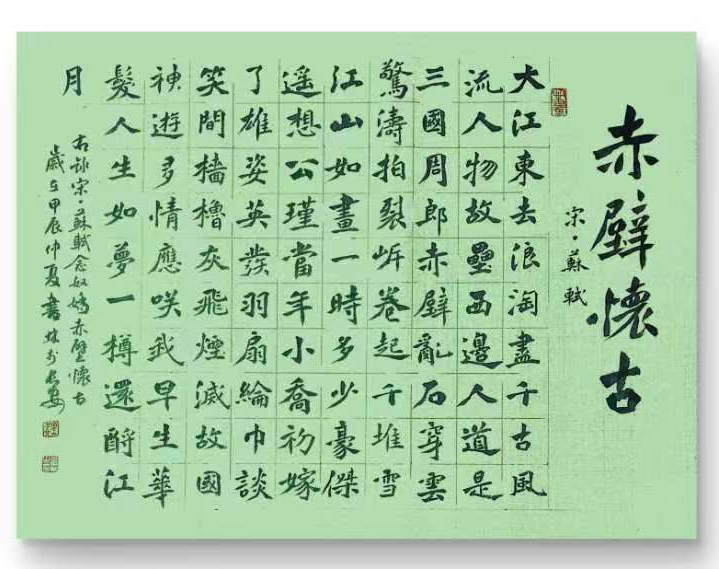 赤壁懷古
宋·蘇軾
大江東去浪淘盡千古風
流人物故壘西邊人道是
三國周郎赤壁亂石穿雲
驚濤拍裂岸卷起千堆雪
江山如畫一時多少豪傑
遥想公瑾當年小喬初嫁
了雄姿英發羽扇綸巾談
笑間檣櫓灰飛煙滅故國
神遊多情應咲我早生華
髮人生如夢一樽還酹江
月
右錄宋·蘇軾念奴嬌赤壁懷古
歲在甲辰仲夏書